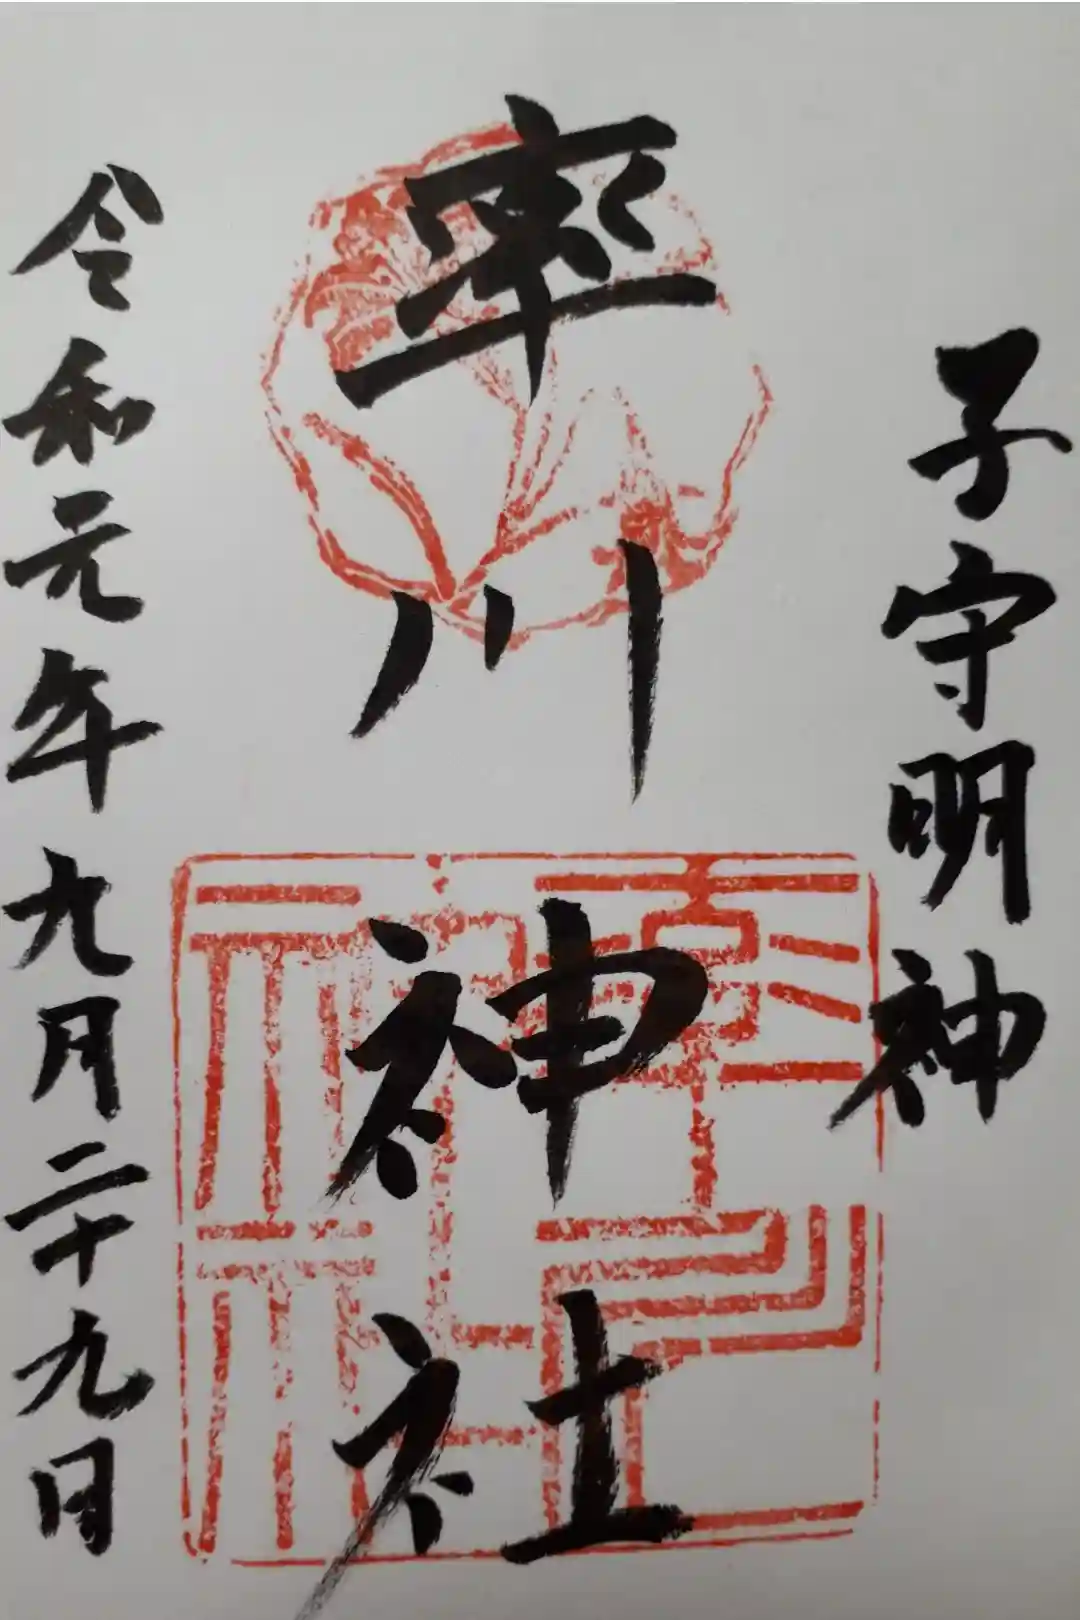 子守明神
率川神社
令和元年九月二十九日